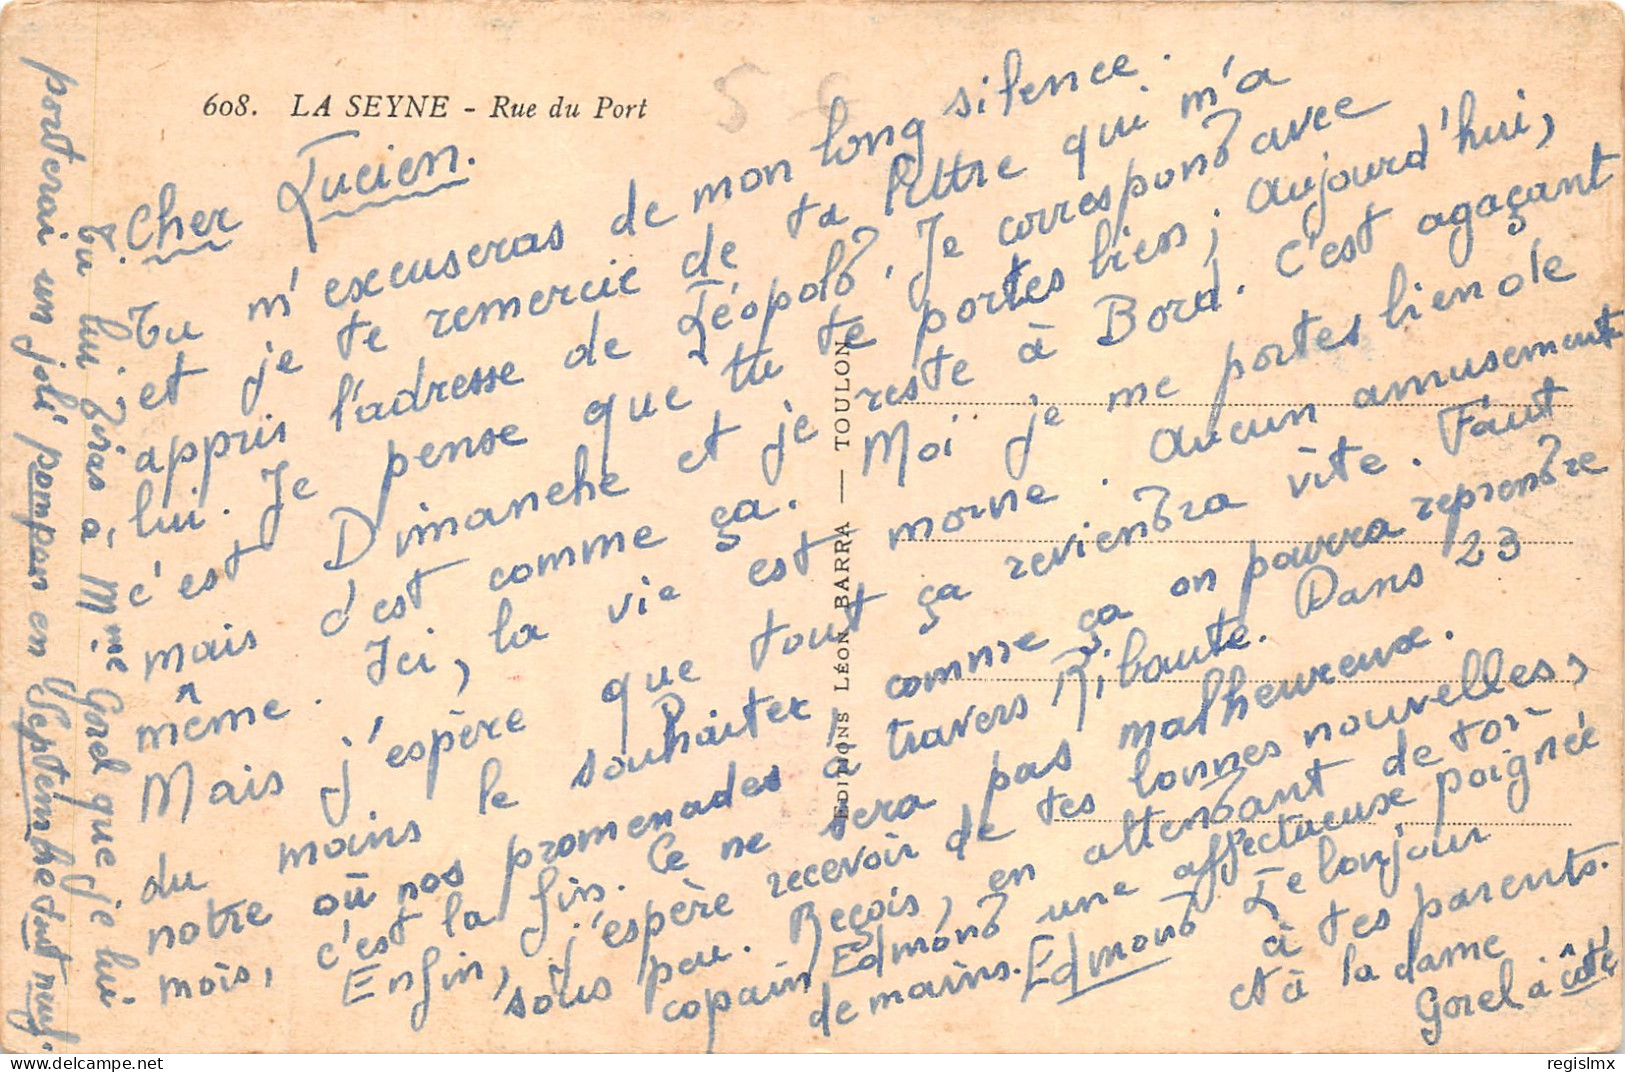 608. LA SEYNE - Rue du Port
Cher Lucien.
Tu m'excuseras de mon long silence.
et je te remercie de ta lettre qui m'a
appris l'adresse de Léopold. Je correspond avec
lui. Je pense que tu te portes bien; aujourd'hui,
c'est Dimanche et je reste à Bord. C'est agaçant
mais c'est comme ça. Moi je me portes bien de
même. Ici, la vie est morne. Aucun amusement
Mais j'espère que tout ça reviendra vite. Faut
du moins le souhaiter, comme ça on pourra reprendre
notre où nos promenades à travers Ribaute. Dans 23
mois, c'est la fin. Ce ne sera pas malheureux.
Enfin, j'espère recevoir de tes bonnes nouvelles,
sous peu. Reçois, en attendant de ton
copain Edmond une affectueuse poignée
de mains. Edmond Le bonjour
à tes parents.
et à la dame
Gorel à côté
Tu lui diras à Mme Gorel que je lui
porterai un joli pompon en Septembre tout neuf.
EDITIONS LÉON BARRA — TOULON
regislmx